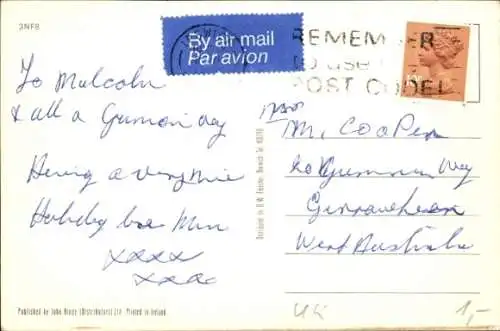 3NFB
By air mail
Par avion
REMEMBER
to use
POST CODE
To Malcolm
& all a Gunnon Way
Having a very nice
Holiday love Mum
xxxx
xxxx
M. Cooper
Way
West Australia
Published by John Hinde (Distributors) Ltd. Printed in Ireland.
UK
1,-